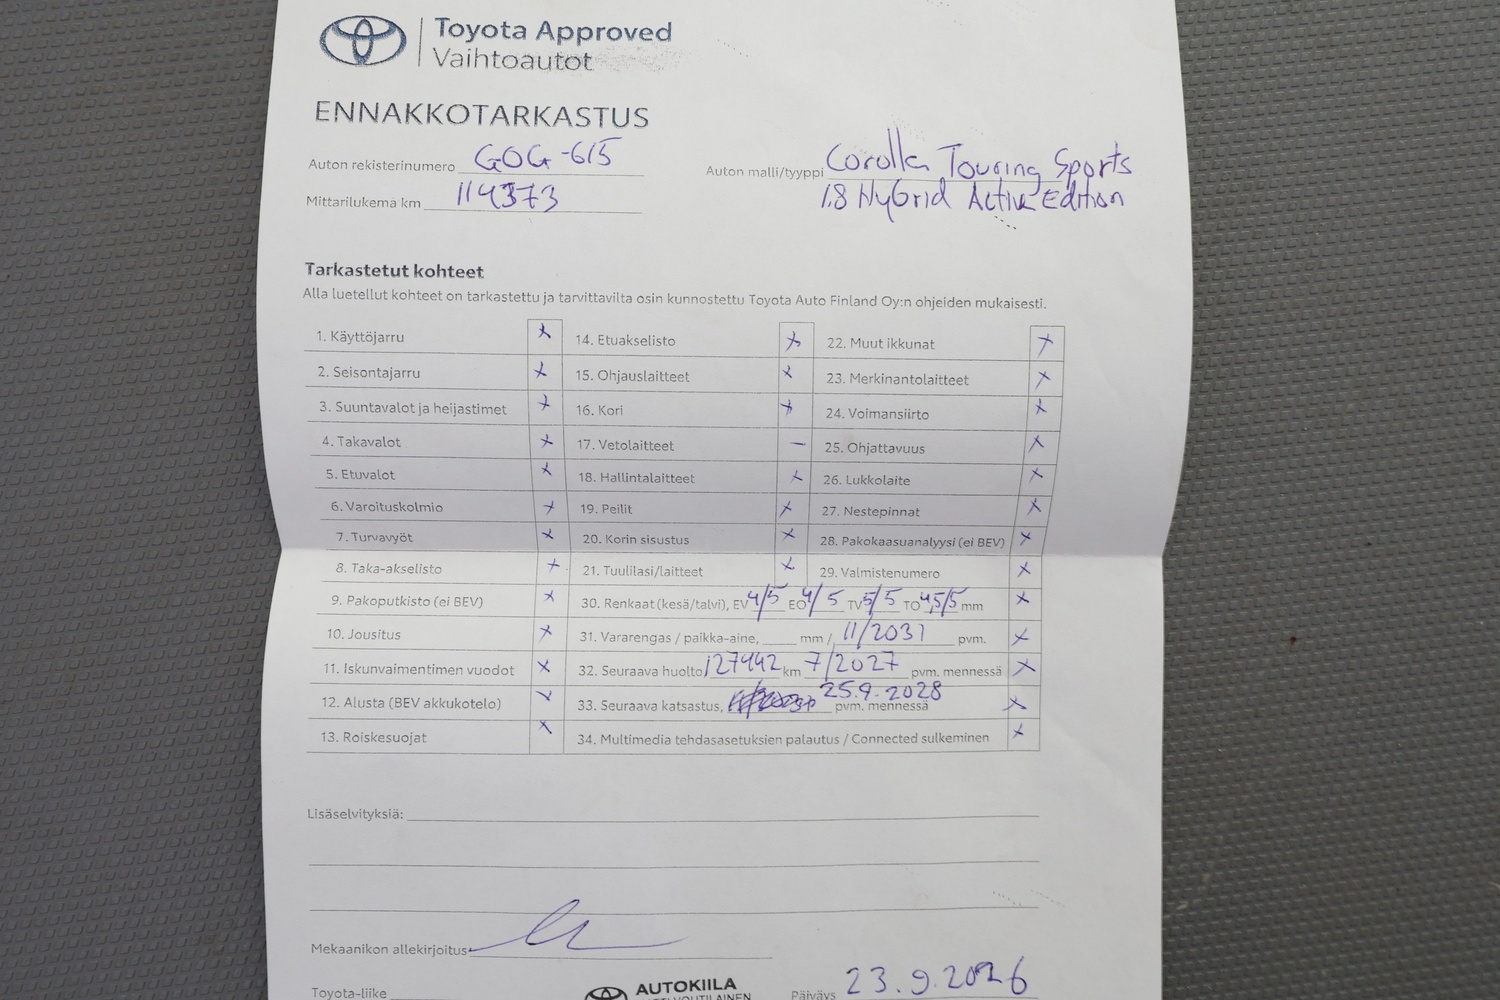 Toyota Approved
Vaihtoautot
ENNAKKOTARKASTUS
Auton rekisterinumero GOG-615
Auton malli/tyyppi Corolla Touring Sports
1.8 Hybrid Active Edition
Mittarilukema km 114373
Tarkastetut kohteet
Alla luetellut kohteet on tarkastettu ja tarvittavilta osin kunnostettu Toyota Auto Finland Oy:n ohjeiden mukaisesti.
1. Käyttöjarru x
2. Seisontajarru x
3. Suuntavalot ja heijastimet x
4. Takavalot x
5. Etuvalot x
6. Varoituskolmio x
7. Turvavyöt x
8. Taka-akselisto x
9. Pakoputkisto (ei BEV) x
10. Jousitus x
11. Iskunvaimentimen vuodot x
12. Alusta (BEV akkukotelo) x
13. Roiskesuojat x
14. Etuakselisto x
15. Ohjauslaitteet x
16. Kori x
17. Vetolaitteet –
18. Hallintalaitteet x
19. Peilit x
20. Korin sisustus x
21. Tuulilasi/laitteet x
22. Muut ikkunat x
23. Merkinantolaitteet x
24. Voimansiirto x
25. Ohjattavuus x
26. Lukkolaite x
27. Nestepinnat x
28. Pakokaasuanalyysi (ei BEV) x
29. Valmistenumero x
30. Renkaat (kesä/talvi), EV 4/5 EO 4/5 TV 5/5 TO 4,5/5 mm x
31. Vararengas / paikka-aine, mm / 11/2031 pvm. x
32. Seuraava huolto 127442 km 7/2027 pvm. mennessä x
33. Seuraava katsastus, 25.9.2028 pvm. mennessä x
34. Multimedia tehdasasetuksien palautus / Connected sulkeminen x
Lisäselvityksiä:
Mekaanikon allekirjoitus
Toyota-liike
AUTOKIILA
Päiväys 23.9.2026